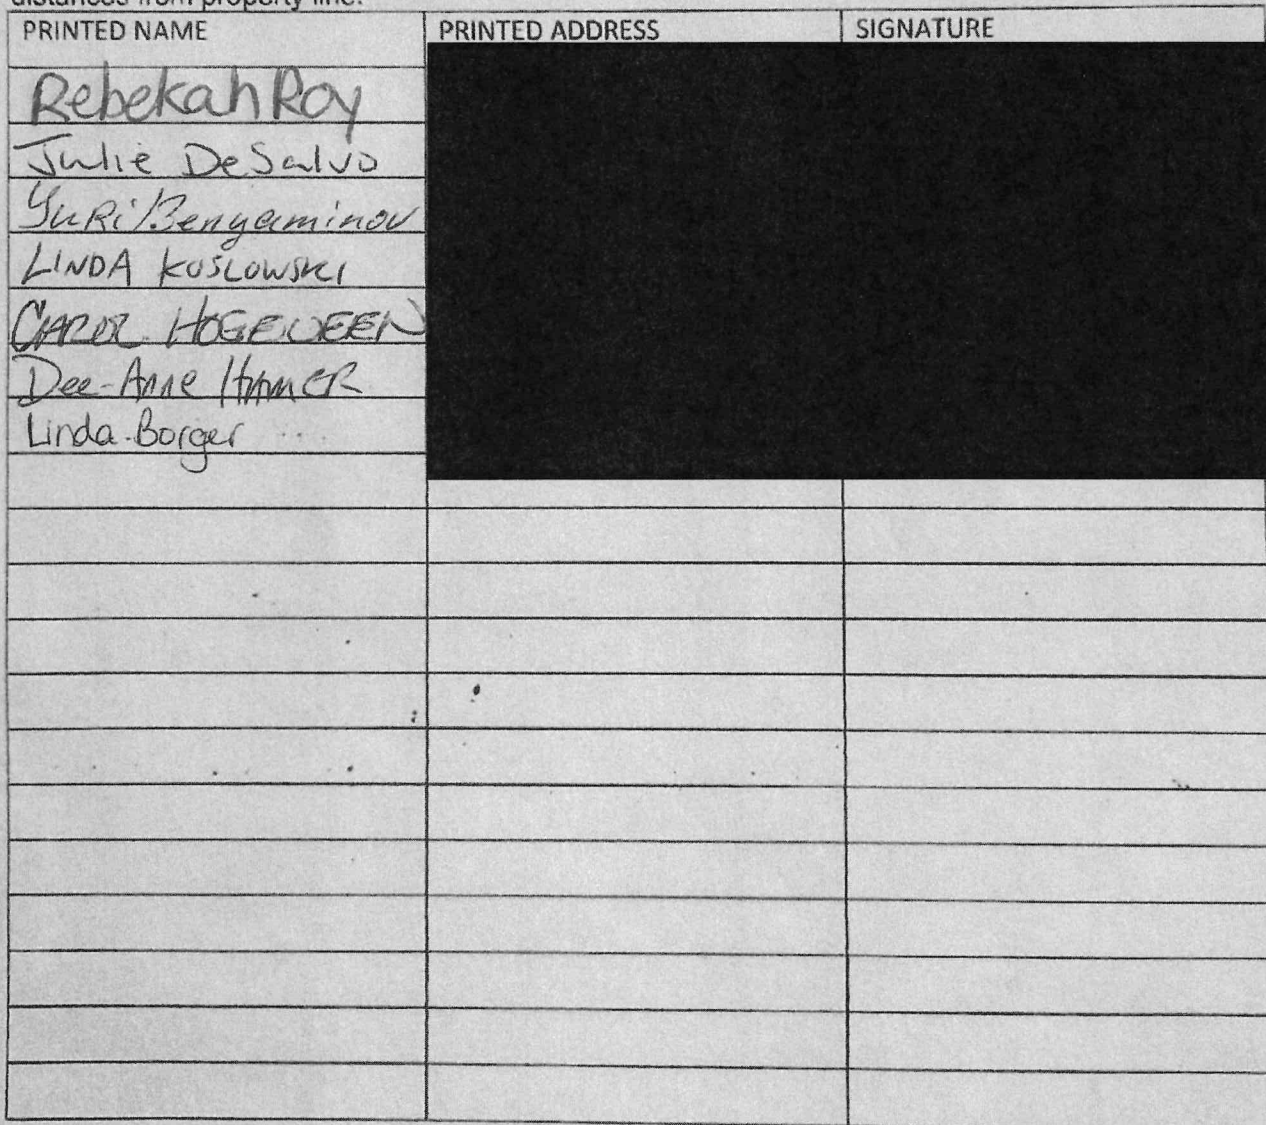 distances from property line.
PRINTED NAME PRINTED ADDRESS SIGNATURE
Rebekah Roy
Julie DeSalvo
Yuri Benyaminov
LINDA KOSLOWSKI
CAROL HOGEVEEN
Dee-Anne HAMER
Linda Borger